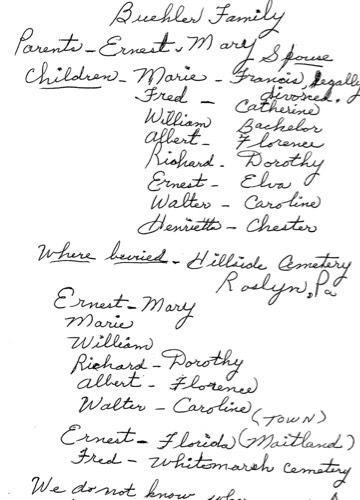 Buehler Family
Parents - Ernest & Mary
Spouse
Children - Marie - Francis, legally divorced.
Fred - Catherine
William Bachelor
Albert - Florence
Richard - Dorothy
Ernest - Elva
Walter - Caroline
Henrietta - Chester
Where beuried - Hillside Cemetery
Roslyn, Pa
Ernest - Mary
Marie
William
Richard - Dorothy
Albert - Florence
Walter - Caroline
(TOWN)
Ernest - Florida (Maitland)
Fred - Whitsmarsh cemetery
We do not know